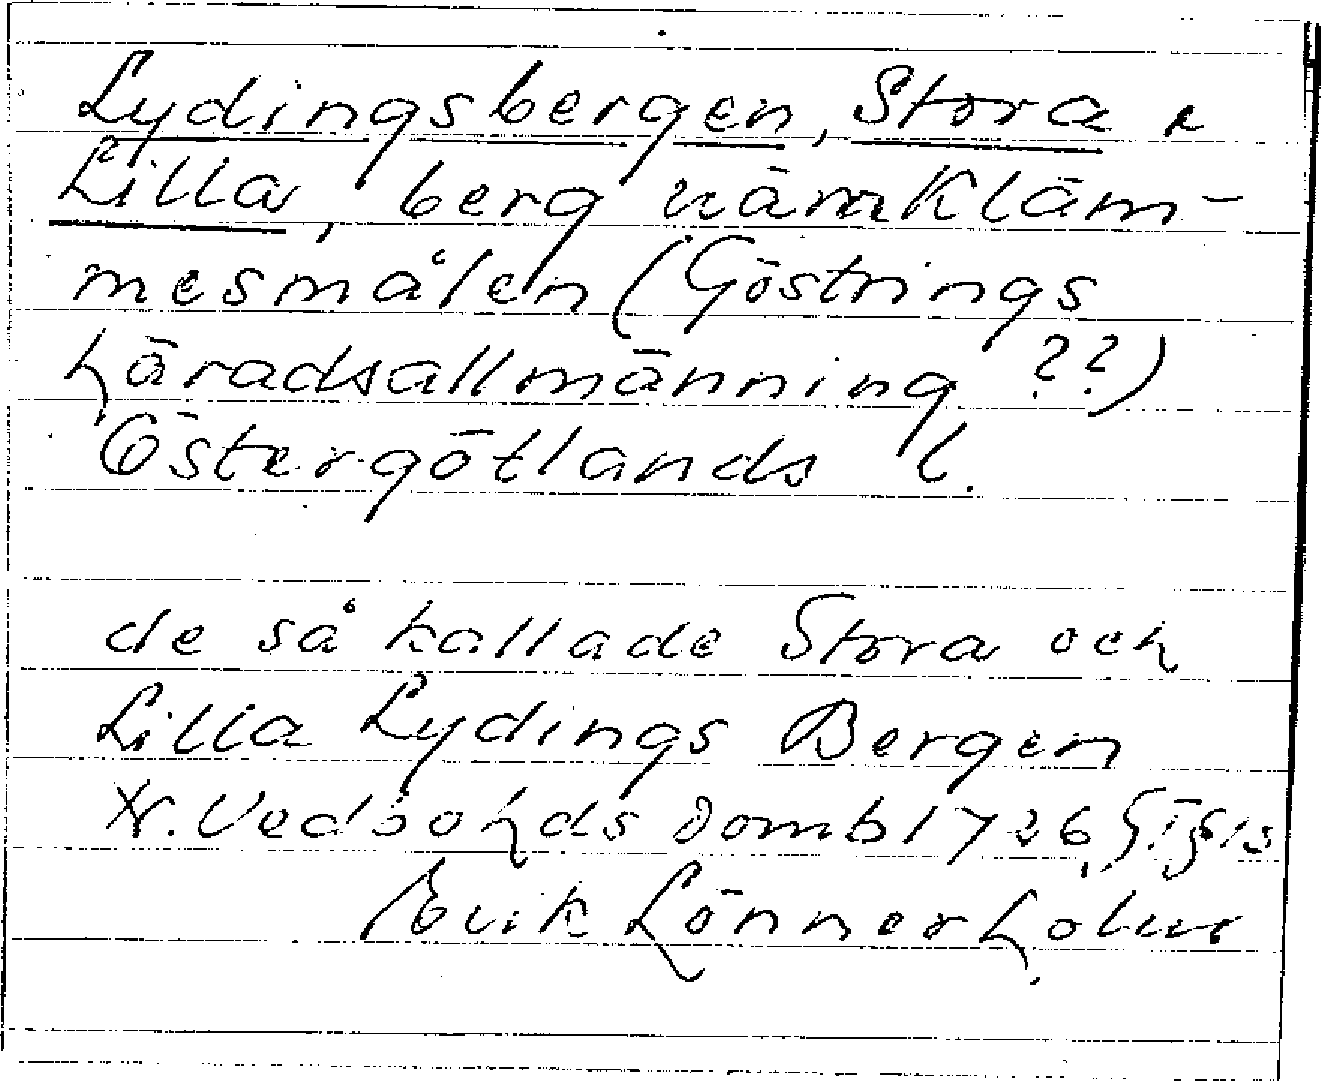 Lydingsbergen, Stora o
Lilla, berg nära Kläm-
mesmålen (Göstrings
häradsallmänning ??)
Östergötlands l.
de så kallade Stora och
Lilla Lydings Bergen
N. Vedbohds Domb 1726,
Erik Lönnerholm